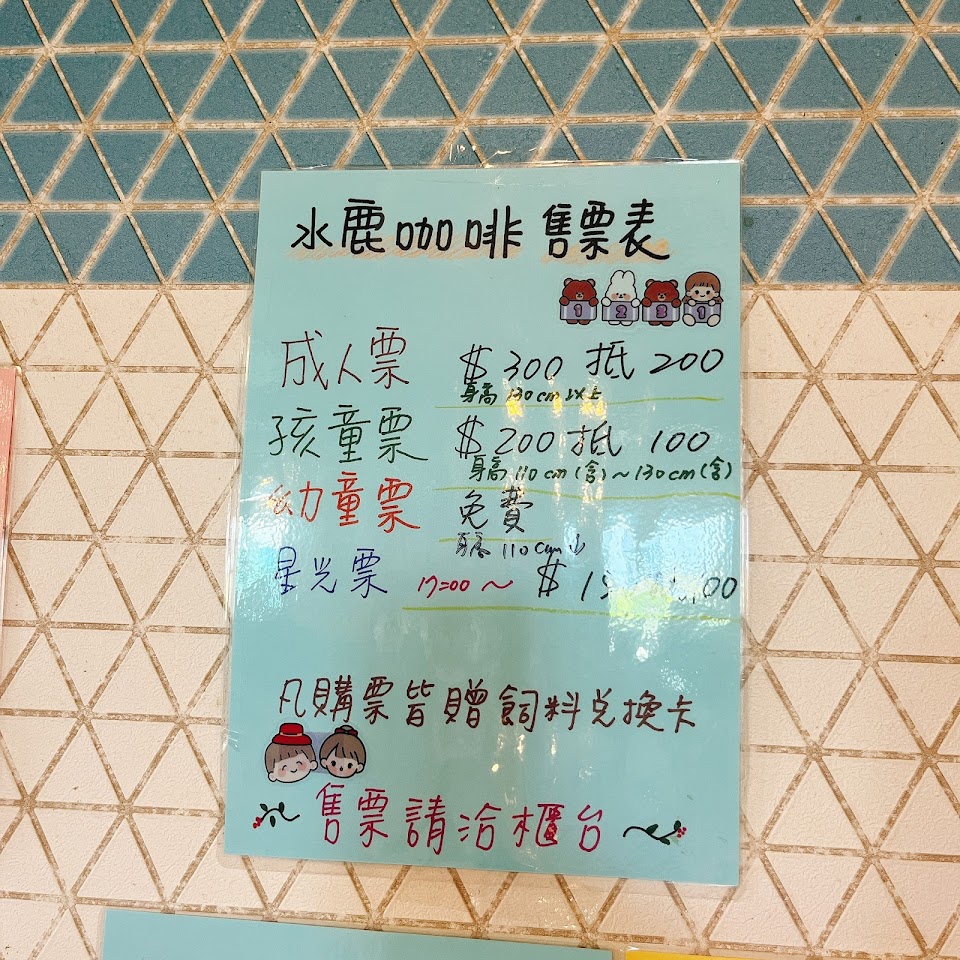 水鹿咖啡售票表
1 2 3 1
成人票 $300 抵 200
身高 130cm以上
孩童票 $200 抵 100
身高 110cm(含)~130cm(含)
幼童票 免費
身高 110cm↓
星光票 17:00~ $1 00
凡購票皆贈飼料兌換卡
售票請洽櫃台